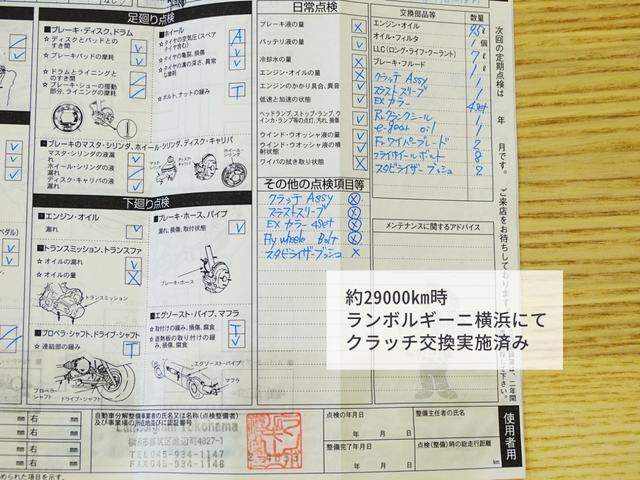 足廻り点検
■ブレーキ・ディスク、ドラム
☆ ディスクとパッドとのすき間
☆ ブレーキパッドの摩耗
☆ ドラムとライニングとのすき間
☆ ブレーキ・シューの摺動部分、ライニングの摩耗
■ブレーキのマスタ・シリンダ、ホイール・シリンダ、ディスク・キャリパ
マスタ・シリンダの液漏れ
ホイール・シリンダの液漏れ
ディスク・キャリパの液漏れ
■ホイール
☆ タイヤの空気圧(スペアタイヤ含む)
☆ タイヤの亀裂、損傷
☆ タイヤの溝の深さ、異常な摩耗
☆ ボルト、ナットの緩み
マスタ・シリンダ
ホイール・シリンダ
下廻り点検
■エンジン・オイル
漏れ
■トランスミッション、トランスファ
☆ オイルの漏れ
☆ オイルの量
トランスミッション
■プロペラ・シャフト、ドライブ・シャフト
☆ 連結部の緩み
プロペラ・シャフト
ドライブ・シャフト
■ブレーキ・ホース、パイプ
漏れ、損傷、取付状態
ブレーキ・ホース
■エグゾースト・パイプ、マフラ
☆ 取付けの緩み、損傷、腐食
☆ 遮熱板の取付けの緩み、損傷、腐食
エグゾースト・パイプ
マフラ
日常点検
ブレーキ液の量
バッテリ液の量
冷却水の量
エンジン・オイルの量
エンジンのかかり具合、異音
低速と加速の状態
ヘッドランプ、ストップ・ランプ、ウインカ・ランプ等の点灯、汚れ、損傷
ウインド・ウオッシャ液の量
ウインド・ウオッシャ液の噴射状態
ワイパの拭き取り状態
その他の点検項目等
クラッチ Assy
スラストスリーブ
EX カラー 4set
Fly wheele Bolt
スタビライザーブッシュ
交換部品等
数量
エンジン・オイル
オイル・フィルタ
LLC(ロング・ライフ・クーラント)
ブレーキ・フルード
クラッチ Assy 1
スラストスリーブ 1
EX カラー 4set
Rrクランクシール 1
e-gear oil 1
Frワイパーブレード 2
フライホイールボルト 8
スタビライザー ブッシュ 2
メンテナンスに関するアドバイス
次回の定期点検は 年 月です。
ご来店をお待ちしております
約29000km時
ランボルギーニ横浜にて
クラッチ交換実施済み
自動車分解整備事業者の氏名又は名称(点検整備者)
及び事業場の所在地並びに認証番号
Lamborghini Yokohama
TEL045-934-1147
FAX045-934-1148
点検の年月日
年 月 日
整備完了年月日
年 月 日
整備主任者の氏名
点検(整備)時の総走行距離
km
使用者用